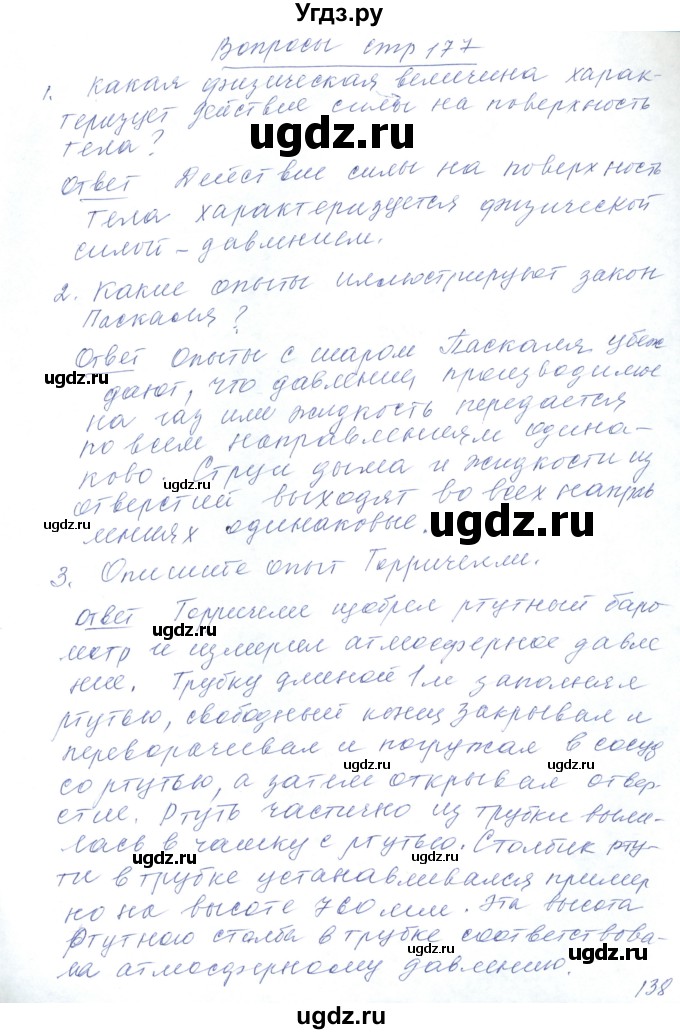 Угдз.ру
Вопросы стр 177
1. Какая физическая величина харак-
теризует действие силы на поверхность
тела?
ugdz.ru
Ответ Действие силы на поверхность
тела характеризуется физической
силой – давлением.
2. Какие опыты иллюстрируют закон
Паскаля?
Ответ Опыты с шаром Паскаля убеж
ugdz.ru
дают, что давлениц производимое
на газ или жидкость передается
по всем направлениям одина-
ково. Струи дыма и жидкости из
ugdz.ru
отверстий выходят во всех направ
ugdz.ru
лениях одинаковые.
3. Опишите опыт Торричелли.
Ответ Торричели изобрел ртутный баро
ugdz.ru
метр и измерил атмосферное давле
ние. Трубку длиной 1м заполнял
ртутью, свободный конец закрывал и
переворачивал и погружал в сосуд
ugdz.ru
со ртутью, а затем открывал отвер-
стие. Ртуть частично из трубки выли-
лась в чашку с ртутью. Столбик рту-
ugdz.ru
ти в трубке устанавливался пример
но на высоте 760 мм. Эта высота
ugdz.ru
ртутного столба в трубке соответствова-
ла атмосферному давлению.
ugdz.ru
138